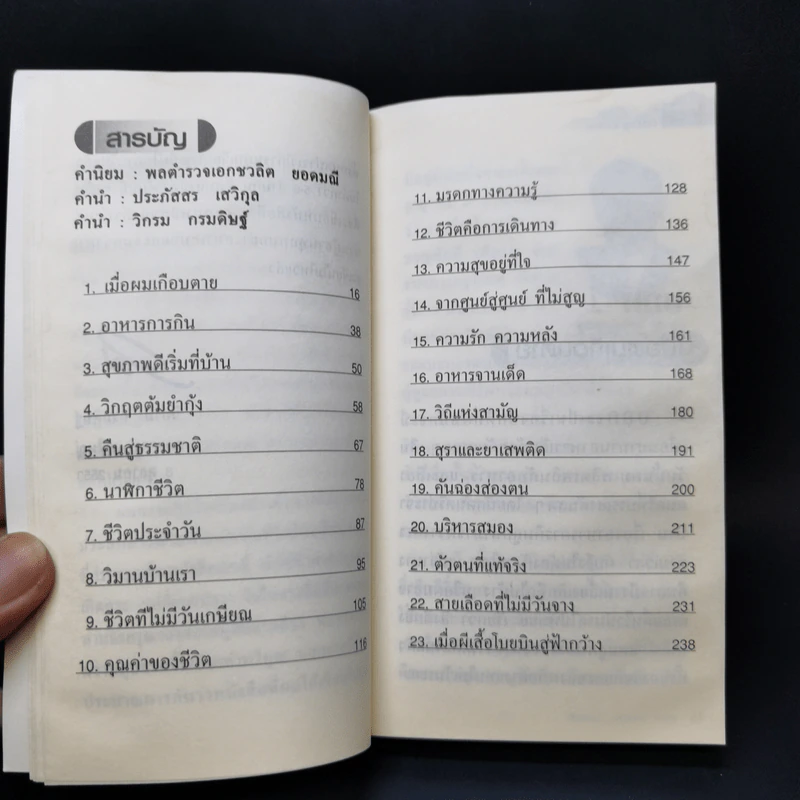 สารบัญ
คำนิยม : พลตำรวจเอกชวลิต ยอดมณี
คำนำ : ประภัสสร เสวิกุล
คำนำ : วิกรม กรมดิษฐ์
1. เมื่อผมเกือบตาย 16
2. อาหารการกิน 38
3. สุขภาพดีเริ่มที่บ้าน 50
4. วิกฤตต้มยำกุ้ง 58
5. คืนสู่ธรรมชาติ 67
6. นาฬิกาชีวิต 78
7. ชีวิตประจำวัน 87
8. วิมานบ้านเรา 95
9. ชีวิตที่ไม่มีวันเกษียณ 105
10. คุณค่าของชีวิต 116
11. มรดกทางความรู้ 128
12. ชีวิตคือการเดินทาง 136
13. ความสุขอยู่ที่ใจ 147
14. จากศูนย์สู่ศูนย์ ที่ไม่สูญ 156
15. ความรัก ความหลัง 161
16. อาหารจานเด็ด 168
17. วิถีแห่งสามัญ 180
18. สุราและยาเสพติด 191
19. คันฉ่องส่องตน 200
20. บริหารสมอง 211
21. ตัวตนที่แท้จริง 223
22. สายเลือดที่ไม่มีวันจาง 231
23. เมื่อผีเสื้อโบยบินสู่ฟ้ากว้าง 238